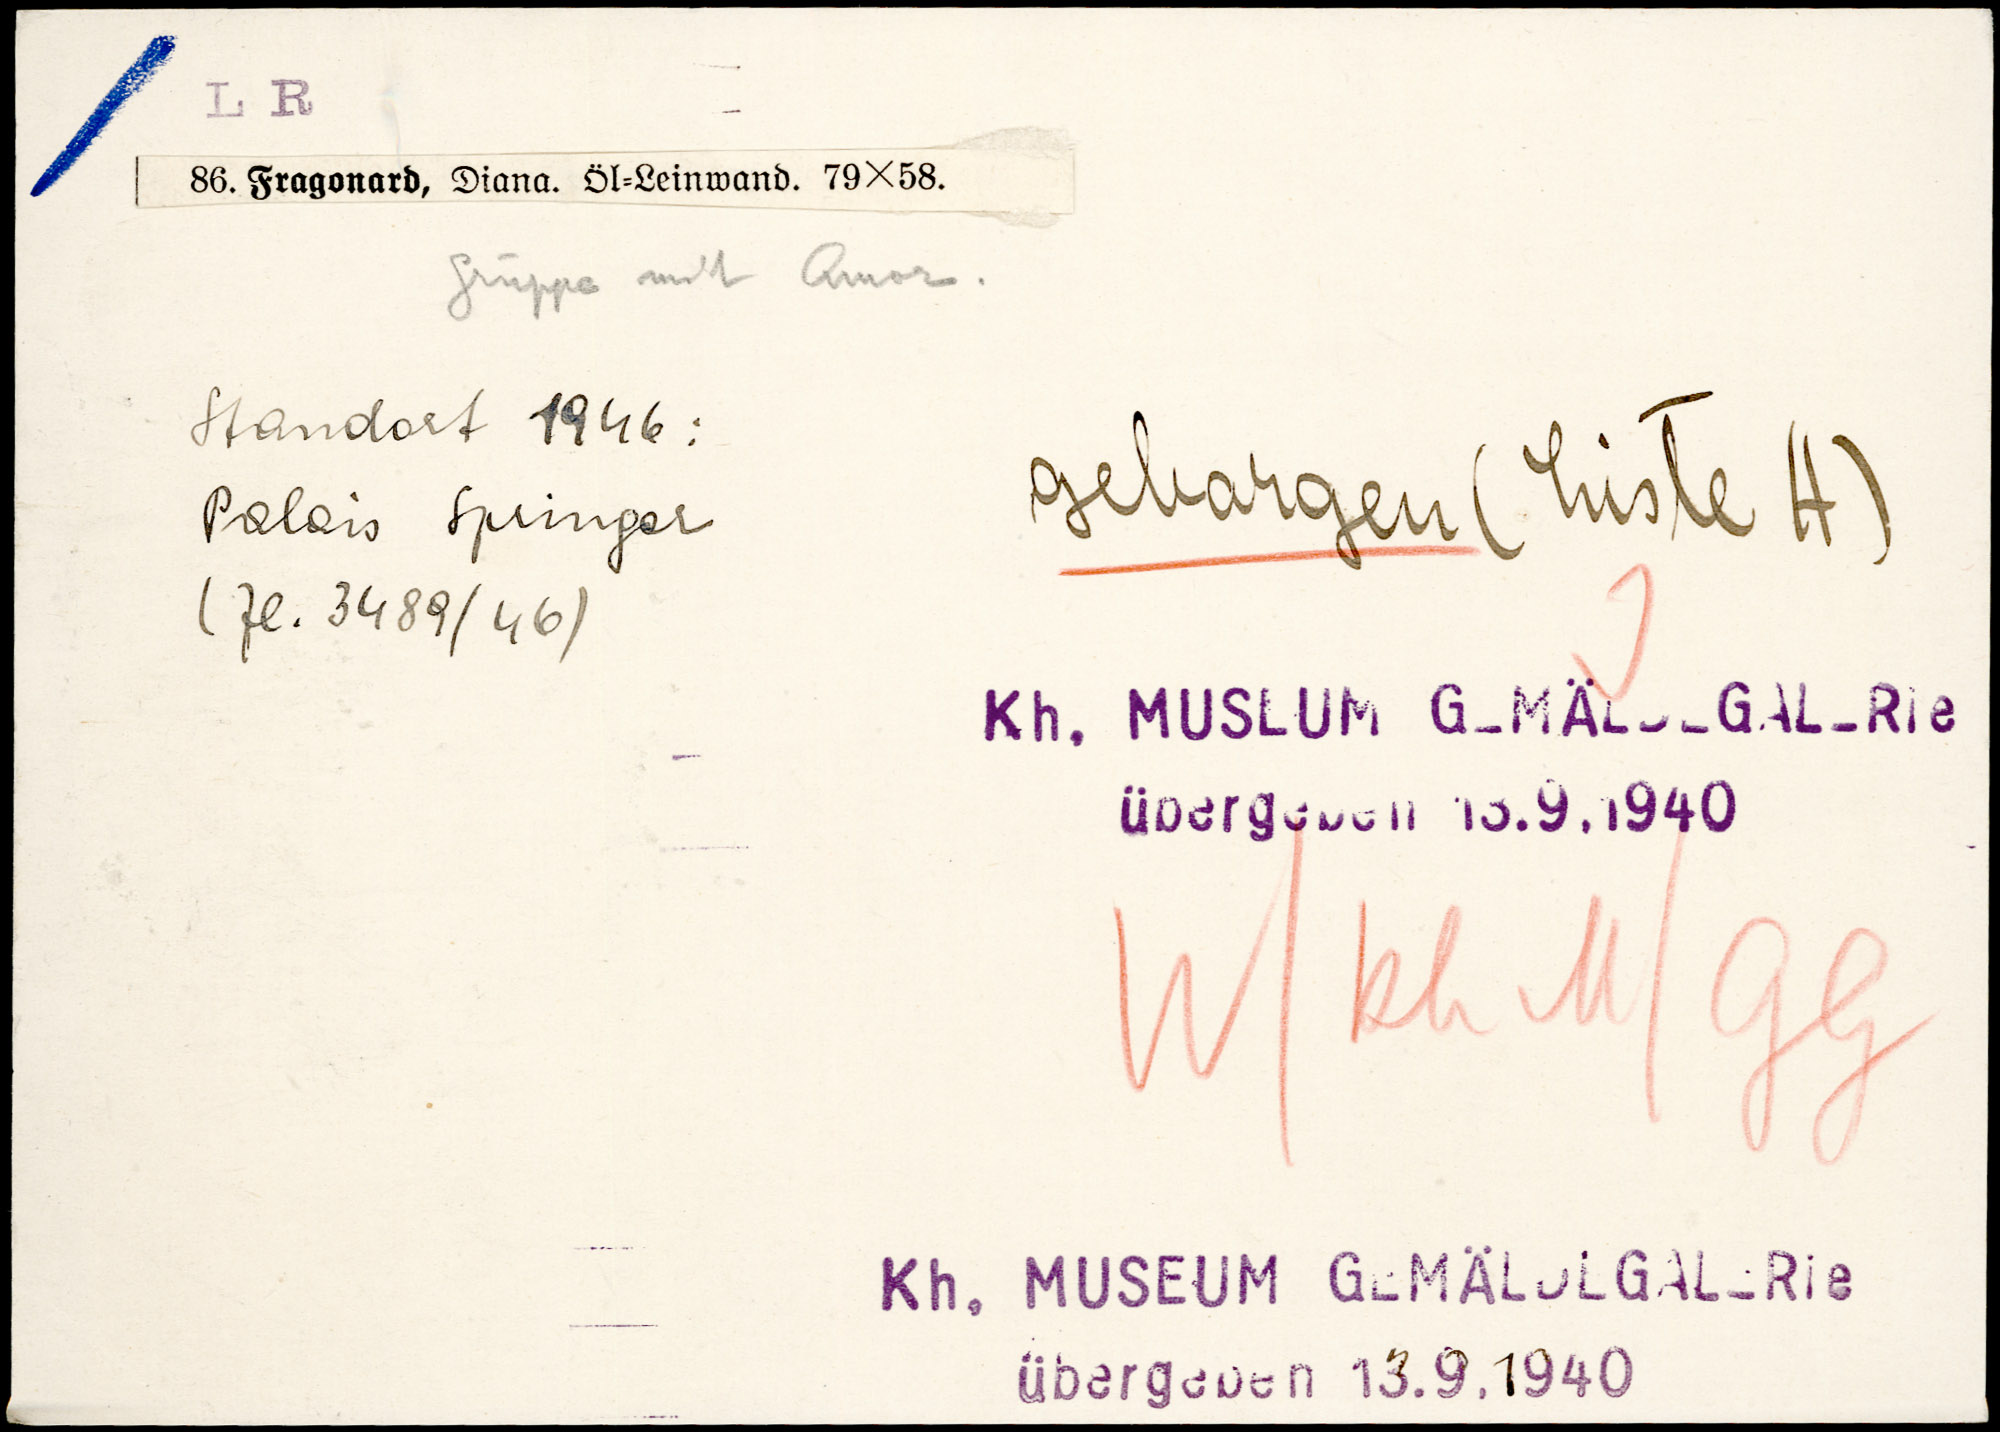 L R
86. Fragonard, Diana. Öl=Leinwand. 79×58.
Gruppe mit Amor.
Standort 1946:
Palais Springer
(Zl. 3489/46)
geborgen (Liste H)
Kh. MUSEUM GEMÄLDEGALERie
übergeben 13.9.1940
W/kh M/GG
Kh. MUSEUM GEMÄLDEGALERie
übergeben 13.9.1940